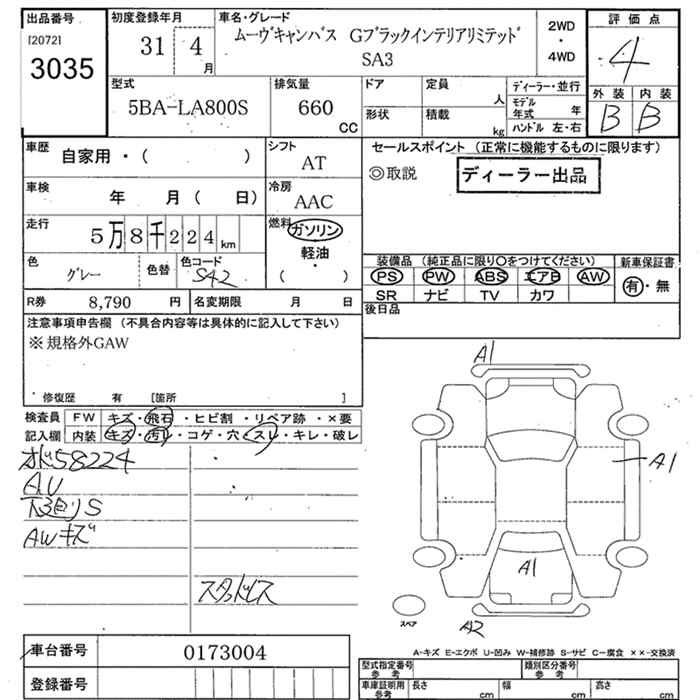 出品番号 初度登録年月 車名・グレード 2WD・4WD 評価点
[2072]
3035
31 4月
ムーヴキャンバス GブラックインテリアリミテッドSA3
4
外装 内装
B B
型式 排気量 ドア 定員 人 ディーラー・並行
5BA-LA800S 660 CC
形状 積載 kg モデル年式 年
ハンドル 左・右
車歴 シフト セールスポイント (正常に機能するものに限ります)
自家用・( ) AT
◎取説 ディーラー出品
車検 年 月( 日) 冷房 AAC
走行 5万8千224km 燃料 ガソリン
軽油
・
( )
色 グレー 色替 色コード S42
装備品 (純正品に限り○をつけてください) 新車保証書
PS PW ABS エアB AW 有・無
SR ナビ TV カワ
R券 8,790 円 名変期限 月 日
後日品
注意事項申告欄 (不具合内容等は具体的に記入して下さい)
※規格外GAW
修復歴 有 [箇所 ]
検査員 FW キズ・飛石・ヒビ割・リペア跡・×要
記入欄 内装 キズ・汚レ・コゲ・穴・スレ・キレ・破レ
58224
AU
S
AWキズ
スタッドレス
A1
A1
A1
スペア
A2
車台番号 0173004
登録番号
A-キズ E-エクボ U-凹み W-補修跡 S-サビ C-腐食 ××-交換済
型式指定番号 参考 類別区分番号 参考
車庫証明用 参考 長さ cm 幅 cm 高さ cm